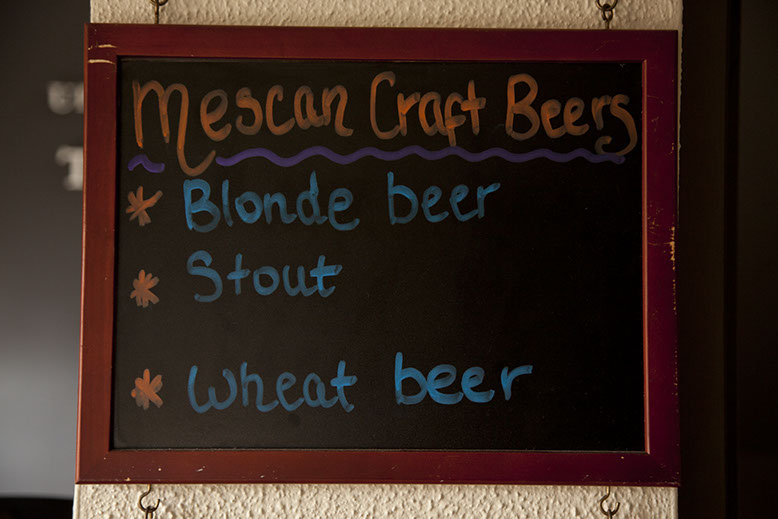 Mescan Craft Beers
* Blonde beer
* Stout
* Wheat beer